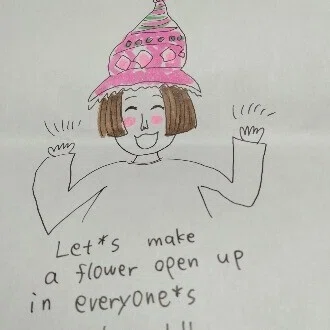 Let*s make
a flower open up
in everyone*s